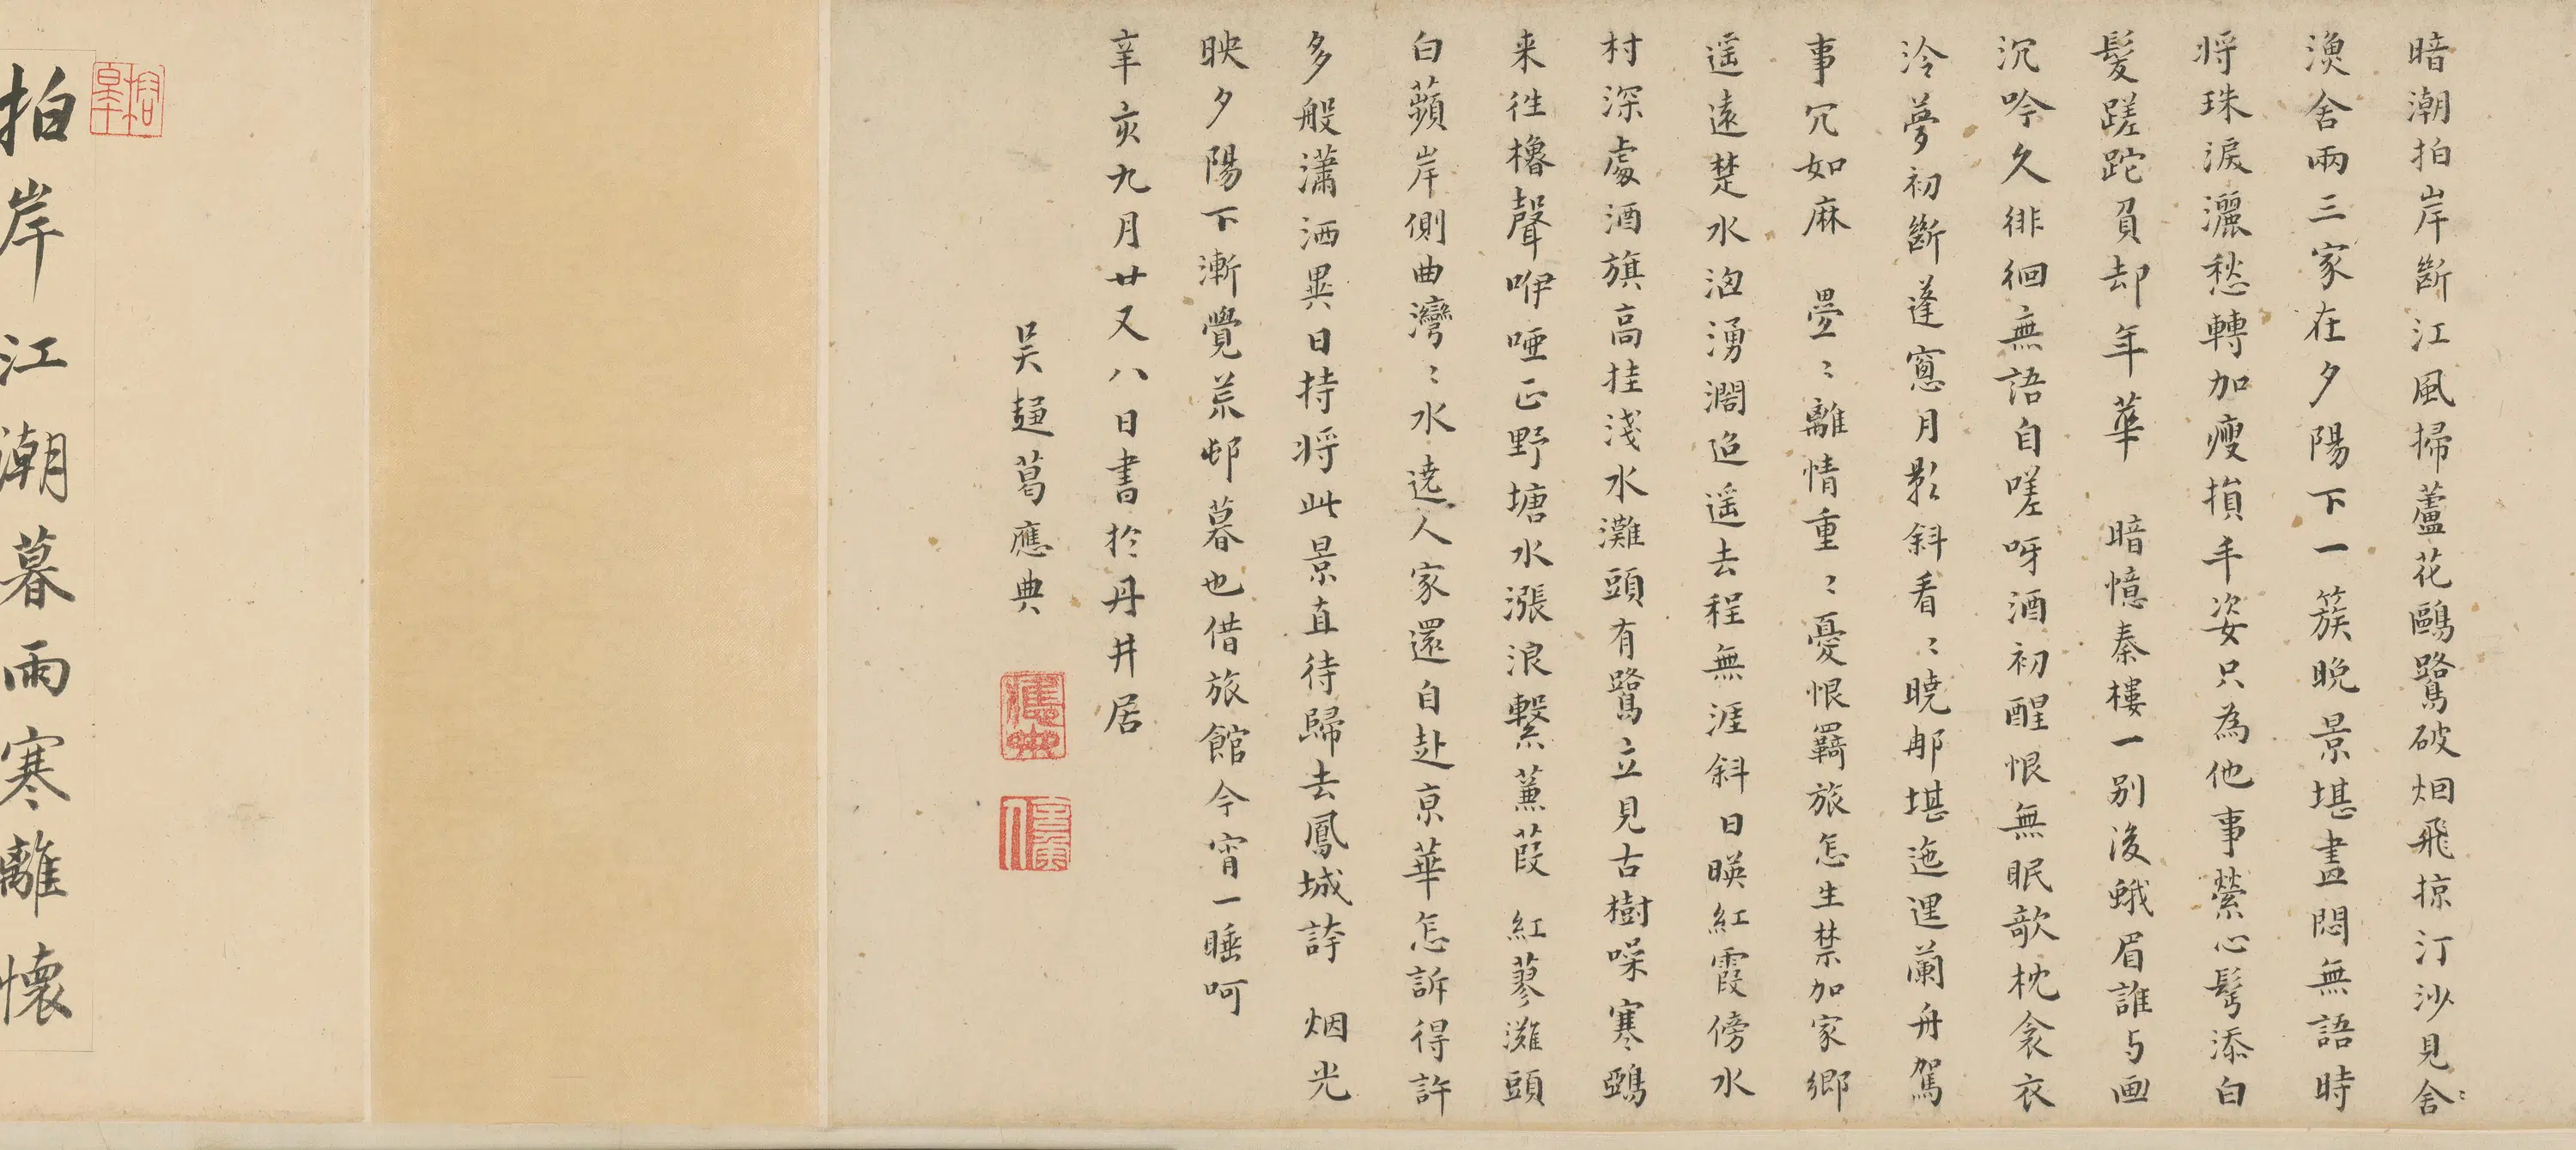 暗潮拍岸斷江風掃蘆花鷗鷺破烟飛掠汀沙見舍〻
漁舍兩三家在夕陽下一簇晚景堪畫悶無語時
将珠淚灑愁轉加瘦損丰姿只為他事縈心髩添白
髮蹉跎負却年華 暗憶秦樓一别後蛾眉誰与画
沉吟久徘徊無語自嗟呀酒初醒恨無眠欹枕衾衣
冷夢初斷蓬窻月影斜看〻曉郍堪迤逦蘭舟駕
事冗如麻 疊〻離情重〻憂恨羇旅怎生禁加家鄉
遥遠楚水洶湧濶迢遥去程無涯斜日暎紅霞傍水
村深處酒旗高挂淺水灘頭有鷺立見古樹噪寒鵶
来徃櫓聲咿啞正野塘水漲浪繫蒹葭 紅蓼灘頭
白蘋岸側曲灣〻水遶人家還自赴亰華怎訴得許
多般瀟洒異日持将此景直待歸去鳳城誇 烟光
映夕陽下漸覺荒邨暮也借旅館今宵一睡呵
辛亥九月廿又八日書於丹井居
吴趨葛應典
應典
拍岸江潮暮雨寒離懷